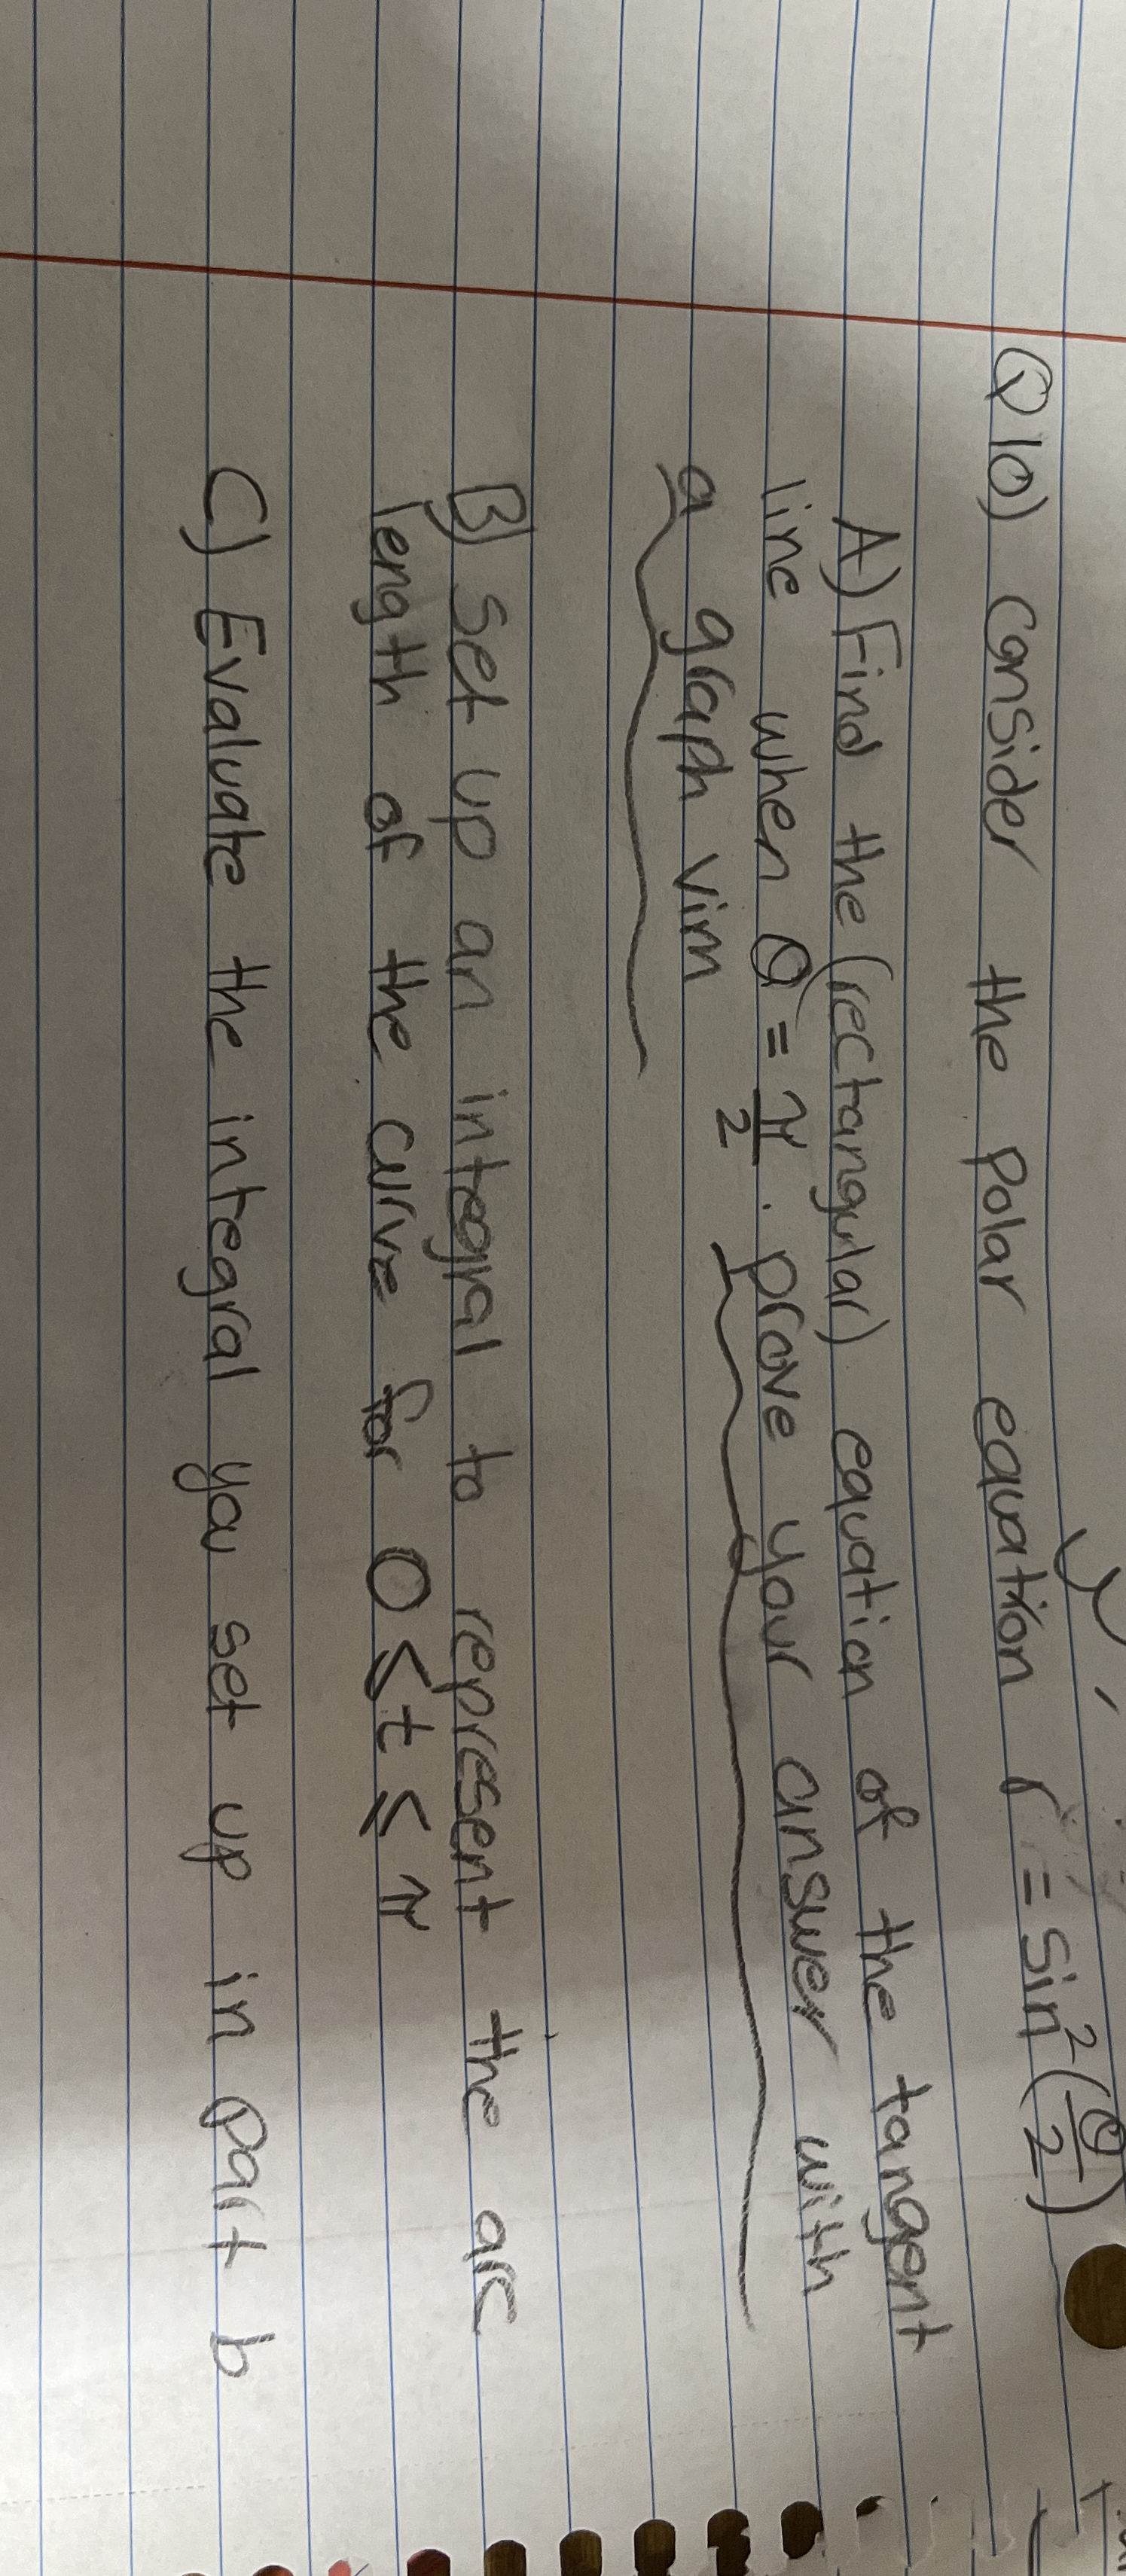 Q10) Consider the Polar equation r = sin²(θ/2)
A) Find the (rectangular) equation of the tangent
line when θ = π/2. prove your answer with
a graph
B) set up an integral to represent the arc
length of the curve for 0 ≤ t ≤ π
C) Evaluate the integral you set up in part b